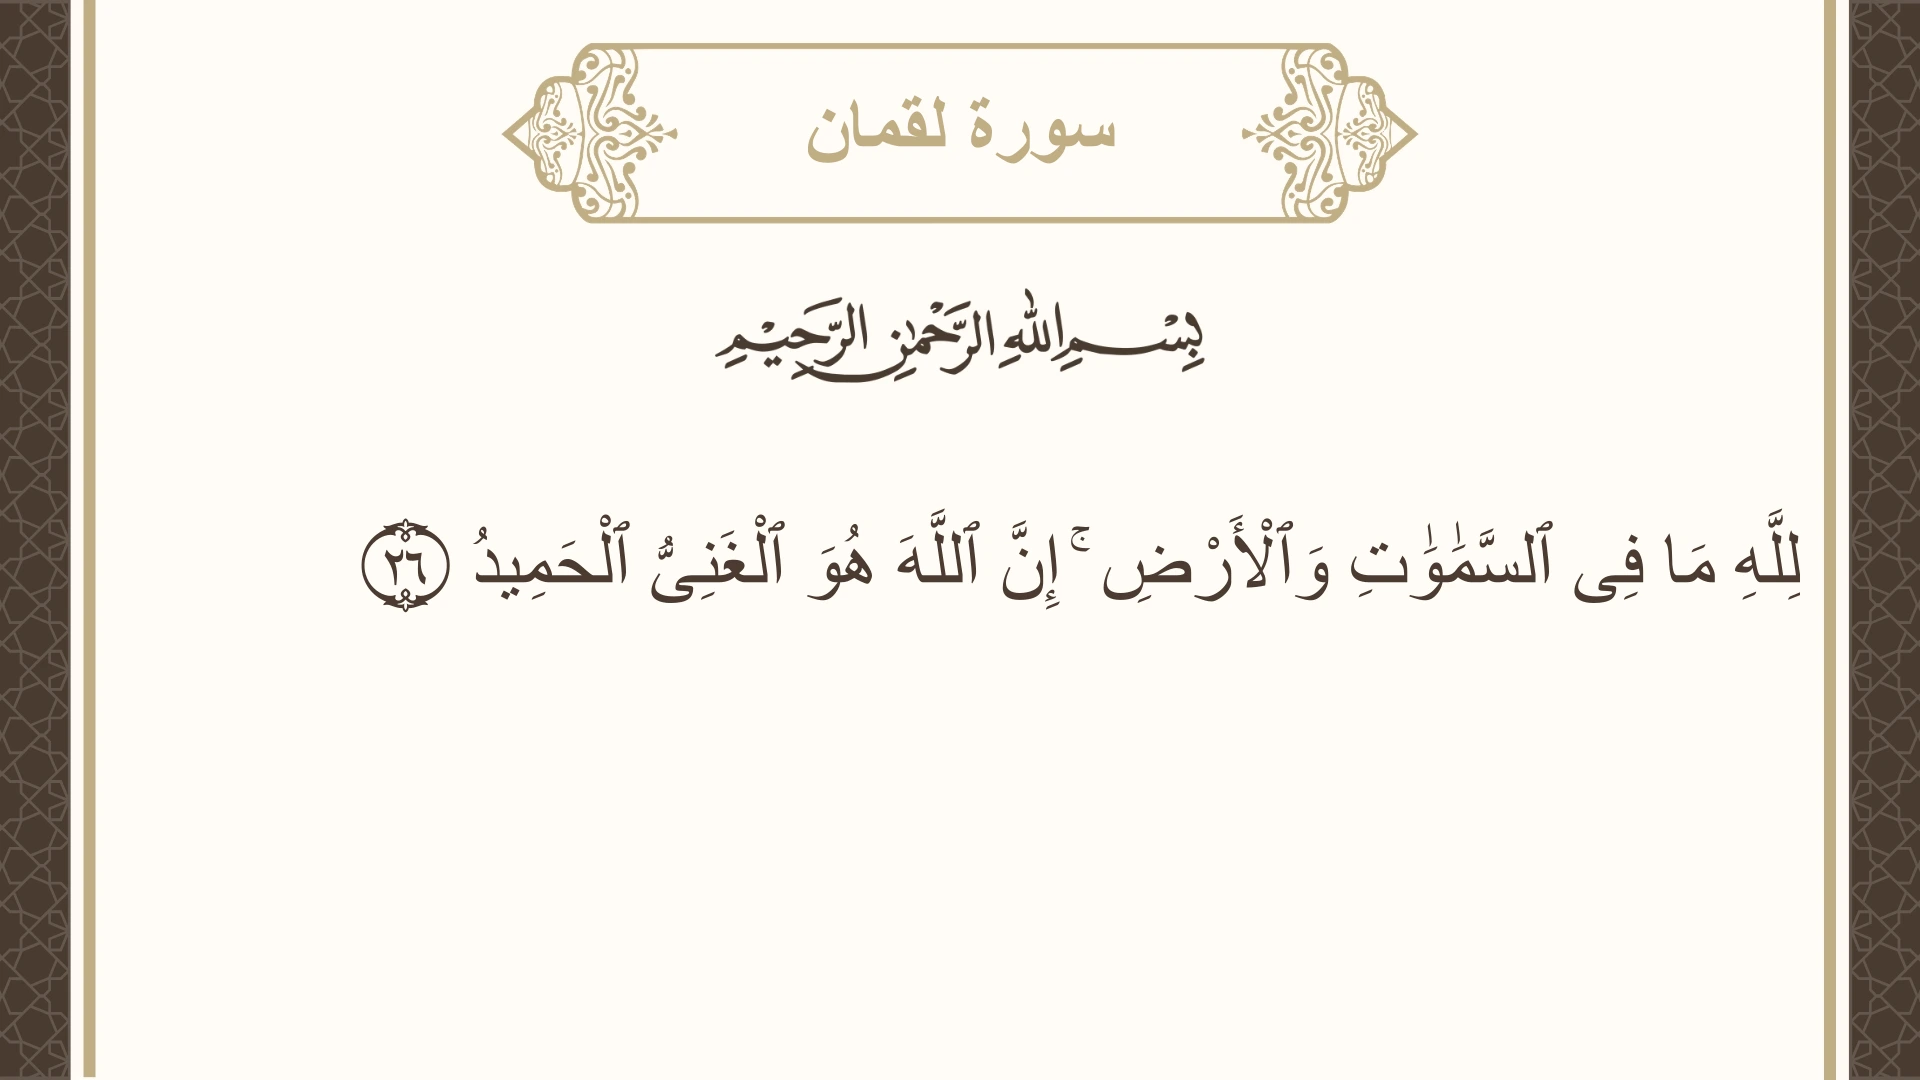 سورة لقمان
بِسْمِ اللهِ الرَّحْمٰنِ الرَّحِيْمِ
لِلَّهِ مَا فِى ٱلسَّمَٰوَٰتِ وَٱلْأَرْضِ ۚ إِنَّ ٱللَّهَ هُوَ ٱلْغَنِىُّ ٱلْحَمِيدُ ٢٦